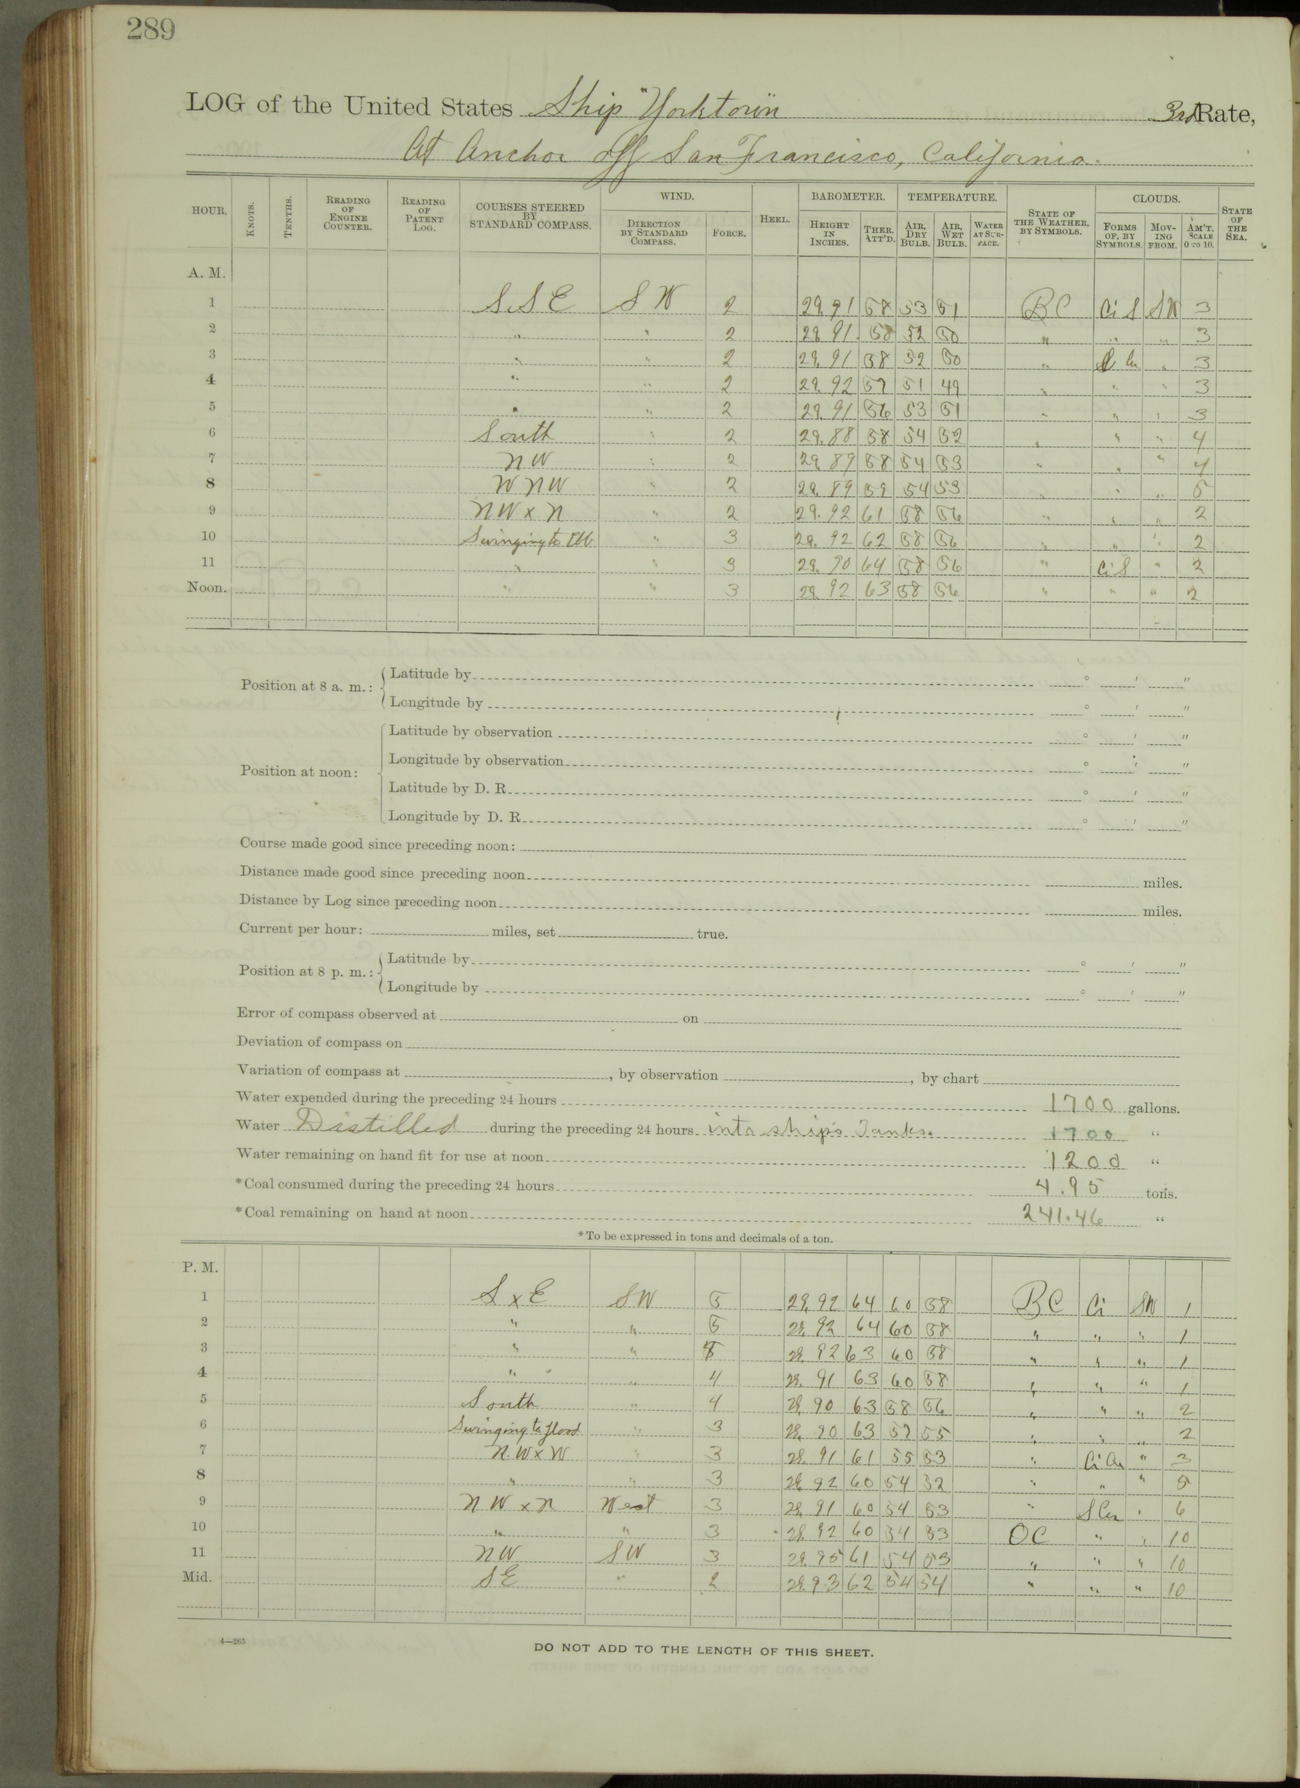 289
LOG of the United States Ship "Yorktown" 3rd Rate,
At Anchor off San Francisco, California.
HOUR. KNOTS. TENTHS. READING OF ENGINE COUNTER. READING OF PATENT LOG. COURSES STEERED BY STANDARD COMPASS. WIND. DIRECTION BY STANDARD COMPASS. FORCE. HEEL. BAROMETER. HEIGHT IN INCHES. THER. ATT'D. TEMPERATURE. AIR, DRY BULB. AIR, WET BULB. WATER AT SURFACE. STATE OF THE WEATHER, BY SYMBOLS. CLOUDS. FORMS OF, BY SYMBOLS. MOVING FROM. AM'T, SCALE 0 TO 10. STATE OF THE SEA.
A. M.
1 S.S.E SW 2 29.91 58 53 51 BC Ci S SW 3
2 " " 2 29.91 58 52 50 " " " 3
3 " " 2 29.91 58 52 50 " " 3
4 " " 2 29.92 57 51 49 " " " 3
5 " " 2 29.91 56 53 51 " " " 3
6 South " 2 29.88 58 54 52 " " " 4
7 NW " 2 29.89 58 54 53 " " " 4
8 WNW " 2 29.89 59 54 53 " " " 5
9 NW x N " 2 29.92 61 58 56 " " " 2
10 Swinging to Ebb " 3 29.92 62 58 56 " " " 2
11 " " 3 29.90 64 58 56 " Ci S " 2
Noon. " " 3 29.92 63 58 56 " " " 2
Position at 8 a. m.: Latitude by ° ′ ″
Longitude by ° ′ ″
Position at noon: Latitude by observation ° ′ ″
Longitude by observation ° ′ ″
Latitude by D. R. ° ′ ″
Longitude by D. R. ° ′ ″
Course made good since preceding noon:
Distance made good since preceding noon miles.
Distance by Log since preceding noon miles.
Current per hour: miles, set true.
Position at 8 p. m.: Latitude by ° ′ ″
Longitude by ° ′ ″
Error of compass observed at on
Deviation of compass on
Variation of compass at , by observation , by chart
Water expended during the preceding 24 hours 1700 gallons.
Water Distilled during the preceding 24 hours into ship's Tanks. 1700 "
Water remaining on hand fit for use at noon 1200 "
*Coal consumed during the preceding 24 hours 4.95 tons.
*Coal remaining on hand at noon 241.46 "
*To be expressed in tons and decimals of a ton.
P. M.
1 S x E SW 5 29.92 64 60 58 BC Ci SW 1
2 " " 5 29.92 64 60 58 " " " 1
3 " " 29.92 63 60 58 " " " 1
4 " " 4 29.91 63 60 58 " " " 1
5 South " 4 29.90 63 58 56 " " " 2
6 Swinging to flood " 3 29.90 63 57 55 " " " 2
7 NW x W " 3 29.91 61 55 53 " Ci Cu " 3
8 " " 3 29.92 60 54 52 " " " 5
9 NW x N West 3 29.91 60 54 53 " S Cu " 6
10 " " 3 29.92 60 54 53 OC " " 10
11 NW SW 3 29.95 61 54 53 " " " 10
Mid. SE " 2 29.93 62 54 54 " " " 10
4—265
DO NOT ADD TO THE LENGTH OF THIS SHEET.